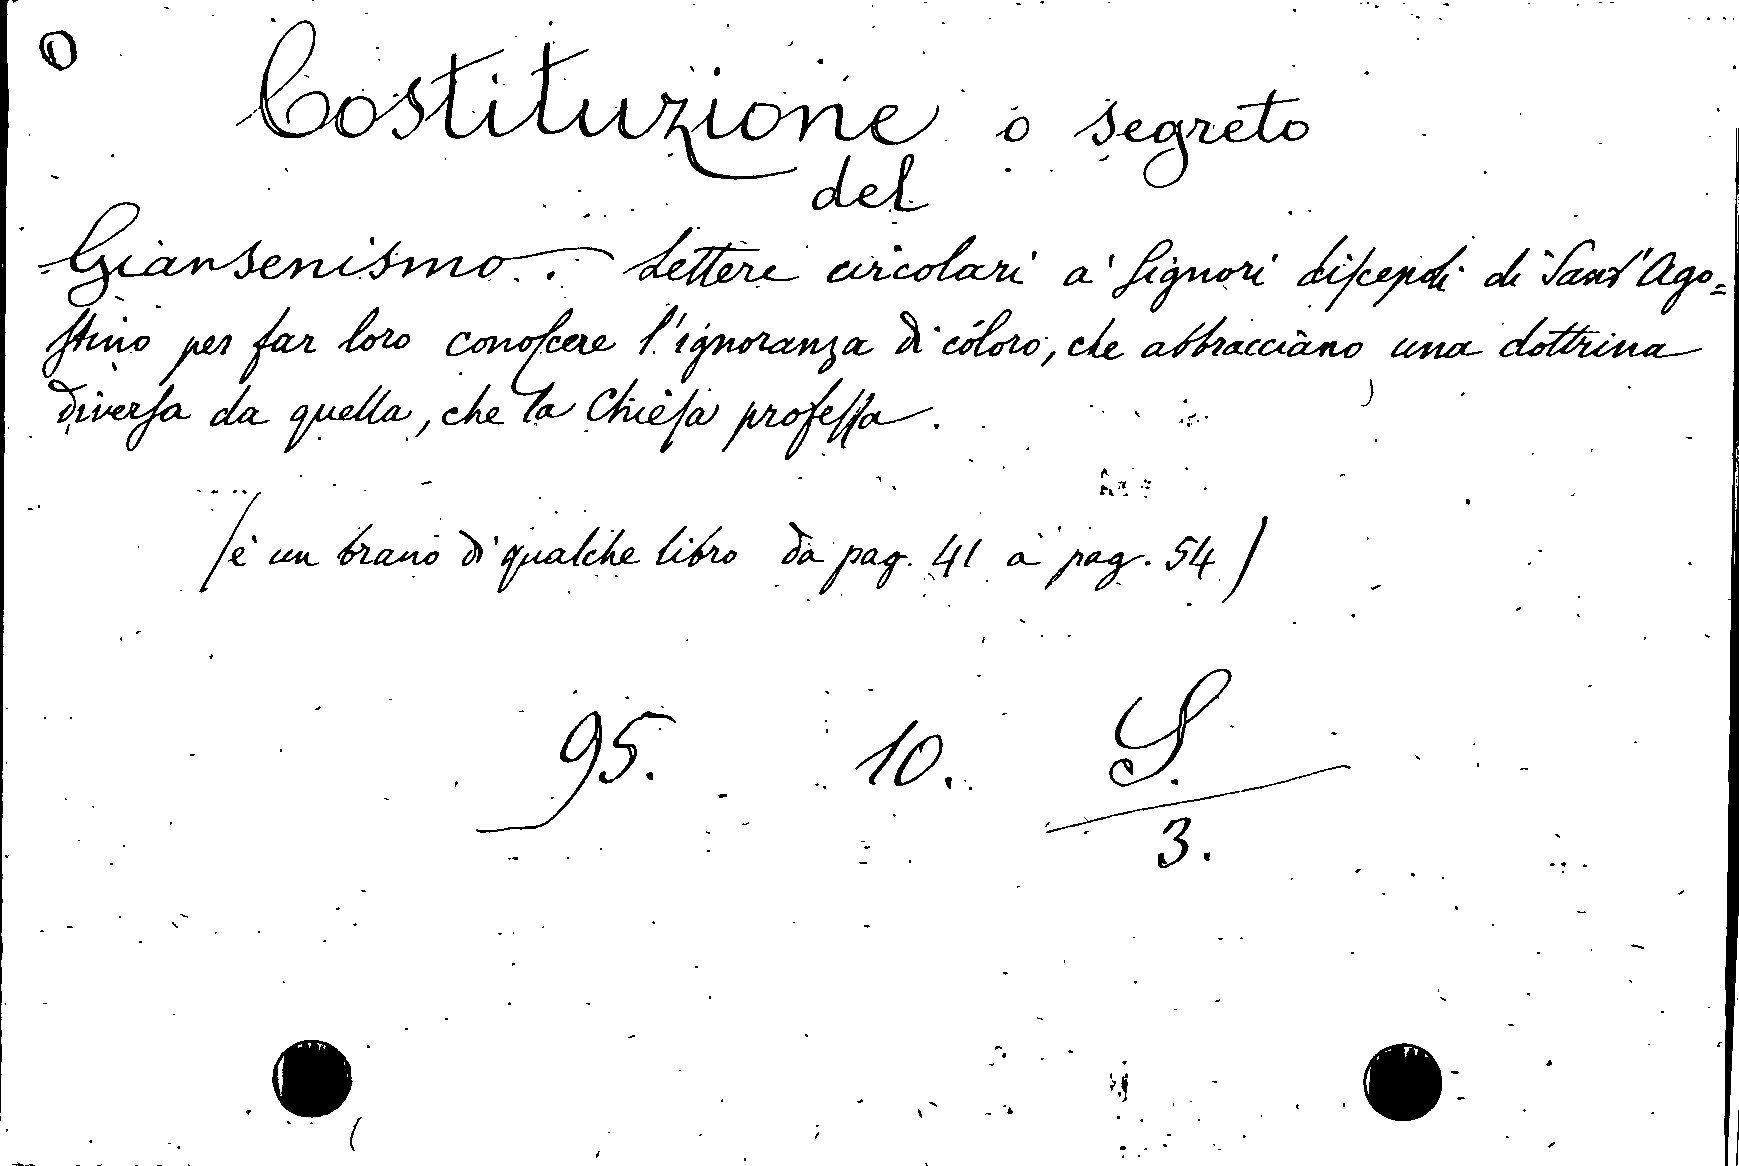 O
Costituzione o segreto
del
Giansenismo. Lettere circolari a' Signori discepoli di Sant'Ago=
stino per far loro conoscere l'ignoranza di coloro, che abbracciano una dottrina
diversa da quella, che la Chiesa professa.
/è un brano di qualche libro da pag. 41 a pag. 54/
95. 10. S.
3.